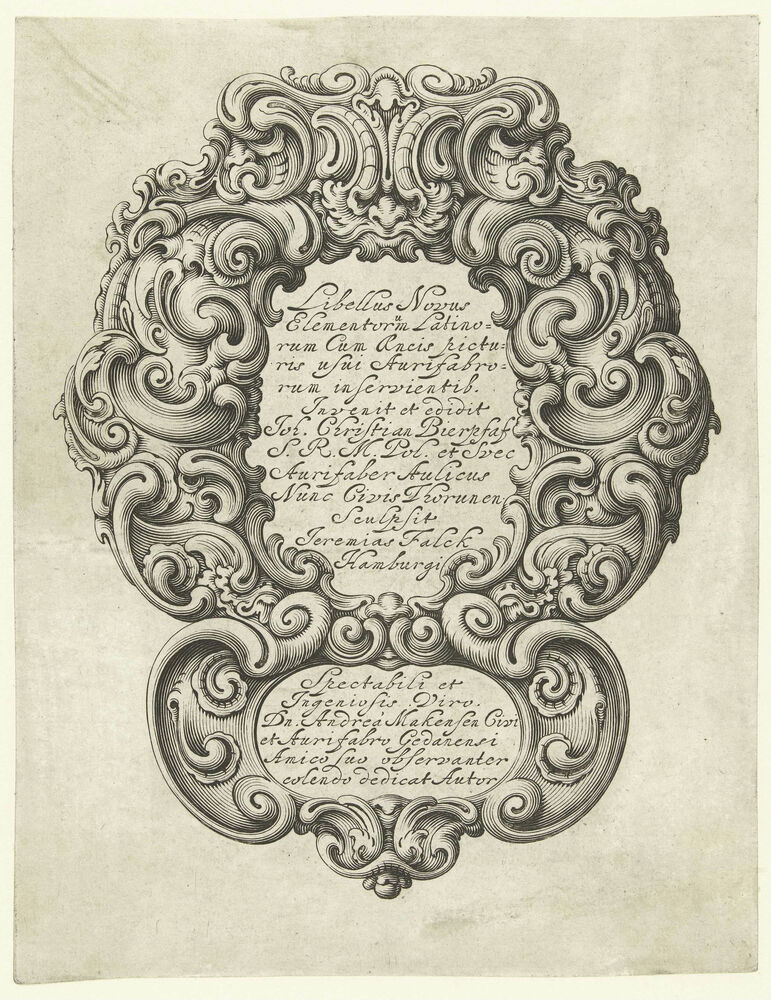 Libellus Novus
Elementorũm Latino=
rum Cum Æneis pictu=
ris usui Aurifabro=
rum inservientib.
Invenit et edidit
Joh. Christian Bierpfaf
S. R. M. Pol. et Svec
Aurifaber Aulicus
Nunc Civis Thorunens
Sculpsit
Jeremias Falck
Hamburgi
Spectabili et
Ingeniosis Viro.
Dn. Andreá Makensen Civi
et Aurifabro Gedanensi
Amico suo observanter
colendo dedicat Autor